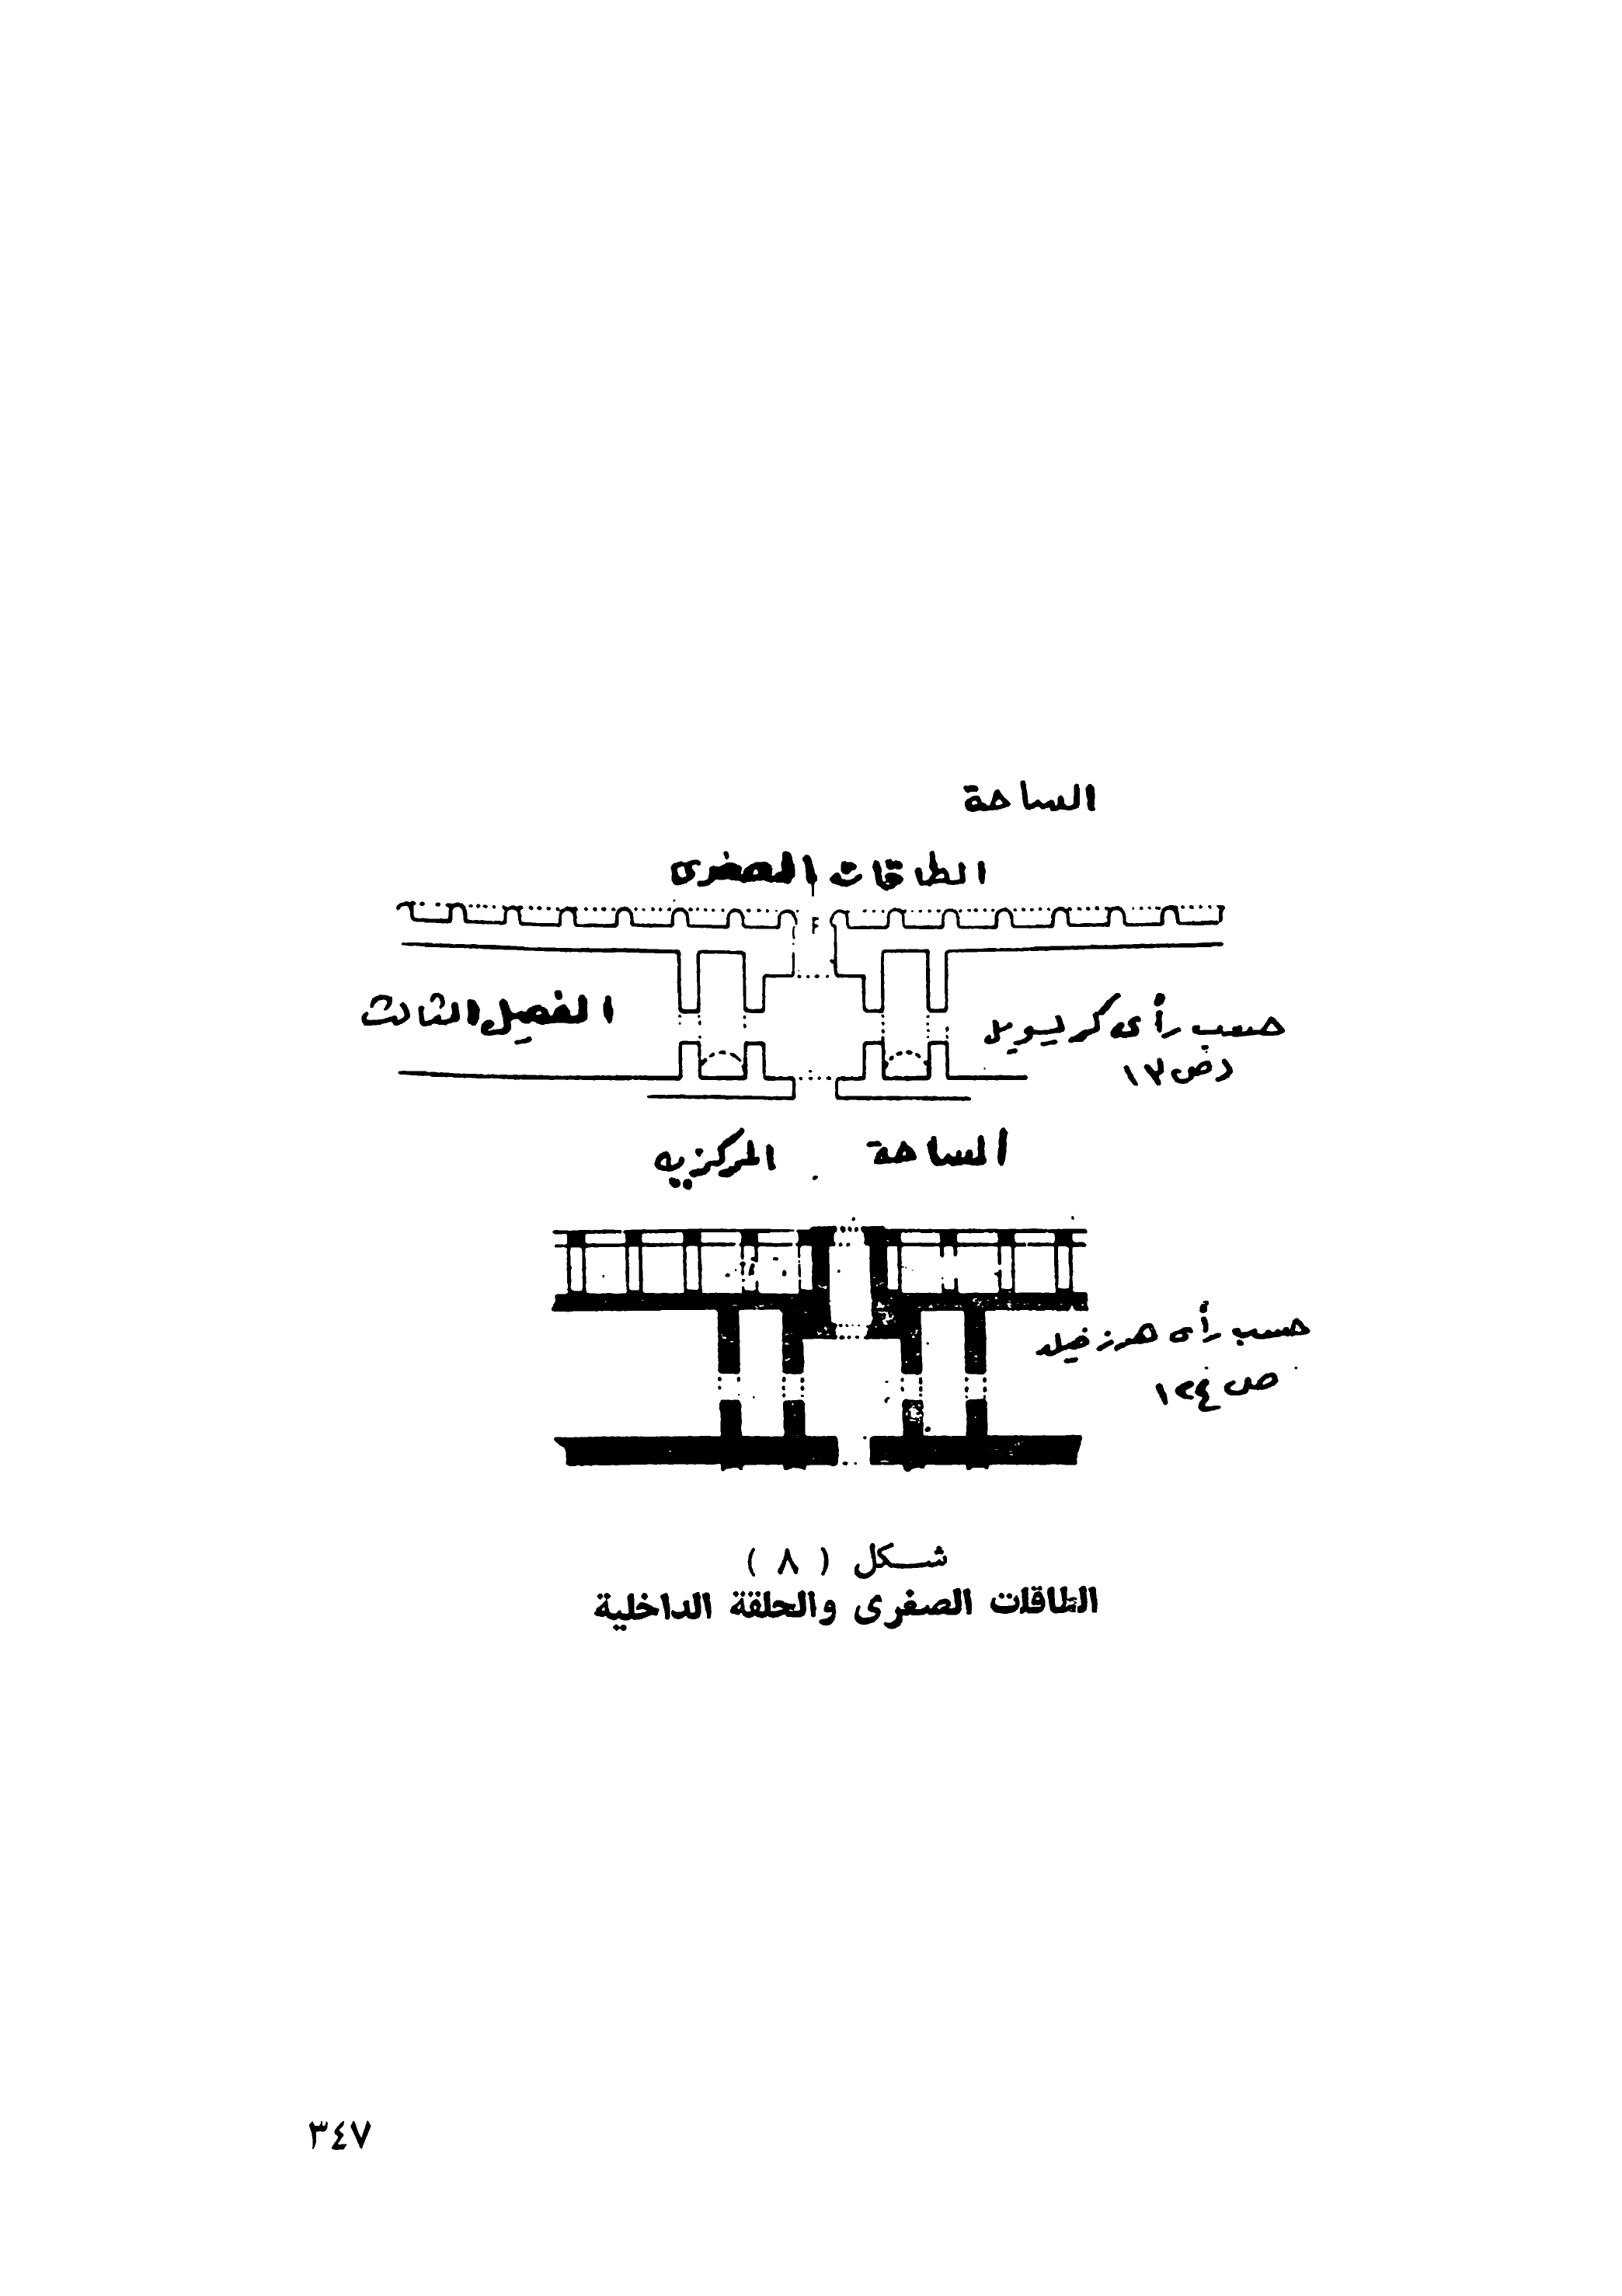 الساحة
الطاقات الصغرى
الفصيل الثالث
حسب رأى كريسويل
ص ١٣
الساحة المركزيه
حسب رأى هرزفيلد
ص ١٢٤
شكل ( ٨ )
الطاقات الصغرى والحلقة الداخلية
٣٤٧